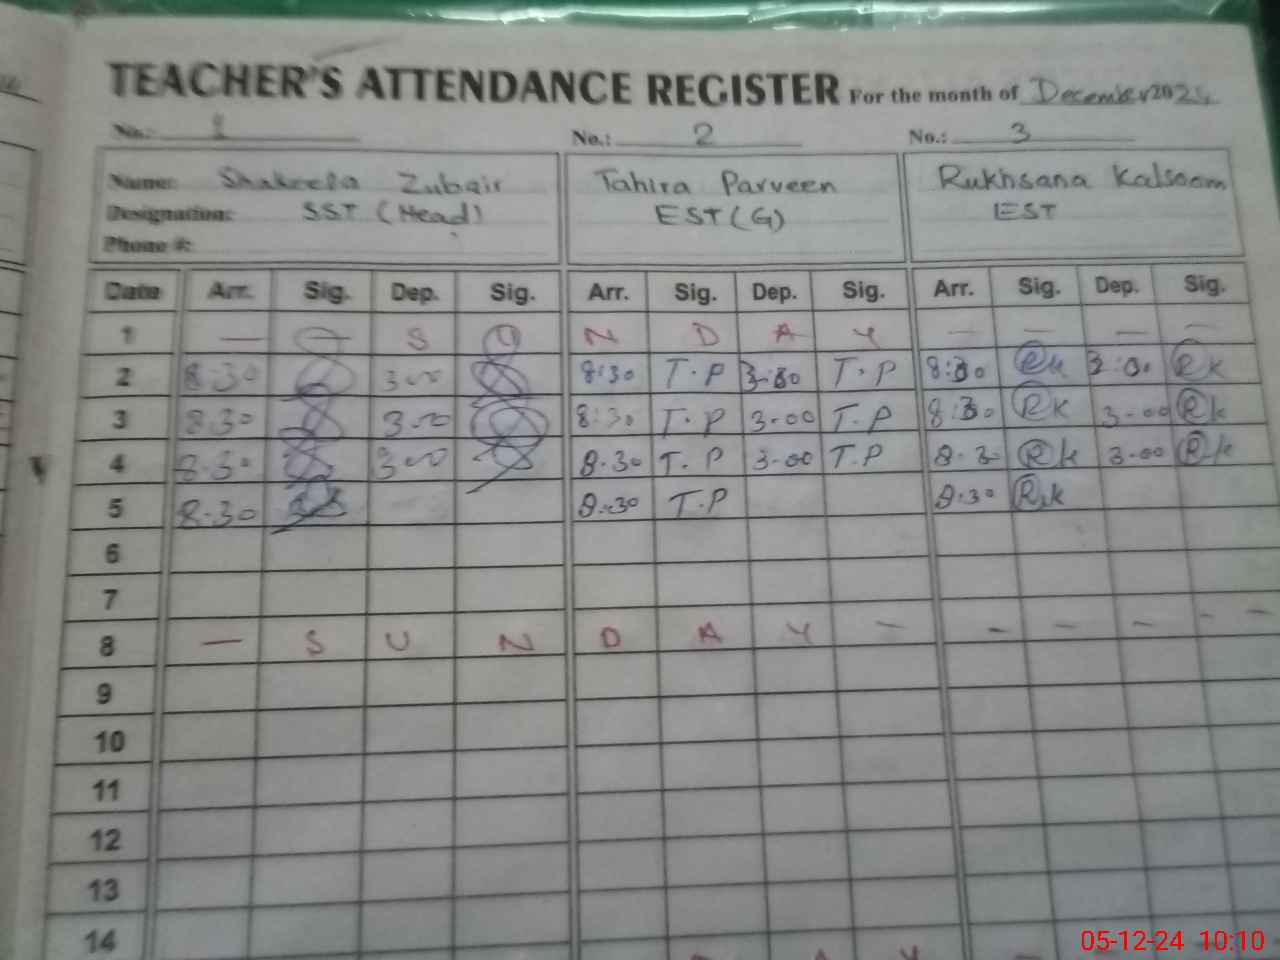 TEACHER'S ATTENDANCE REGISTER For the month of December 2024
No.: 1 No.: 2 No.: 3
Name: Shakeela Zubair Tahira Parveen Rukhsana Kalsoom
Designation: SST (Head) EST (G) EST
Phone #:
Date Arr. Sig. Dep. Sig. Arr. Sig. Dep. Sig. Arr. Sig. Dep. Sig.
1 — — S U N D A Y — — — —
2 8:30 3:00 8:30 T.P T.P 8:30 Rk 3:00 Rk
3 8:30 3:00 8:30 T.P 3-00 T.P 8:30 Rk 3-00 Rk
4 8.30 3:00 8.30 T.P 3-00 T.P 8.30 Rk 3-00 Rk
5 8.30 8:30 T.P 8:30 Rk
6
7
8 — S U N D A Y — - - - - -
9
10
11
12
13
14
A Y
05-12-24 10:10